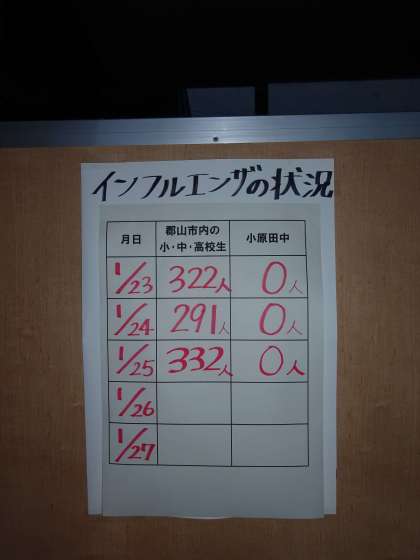 インフルエンザの状況
月日 郡山市内の 小・中・高校生 小原田中
1/23 322人 0人
1/24 291人 0人
1/25 332人 0人
1/26
1/27